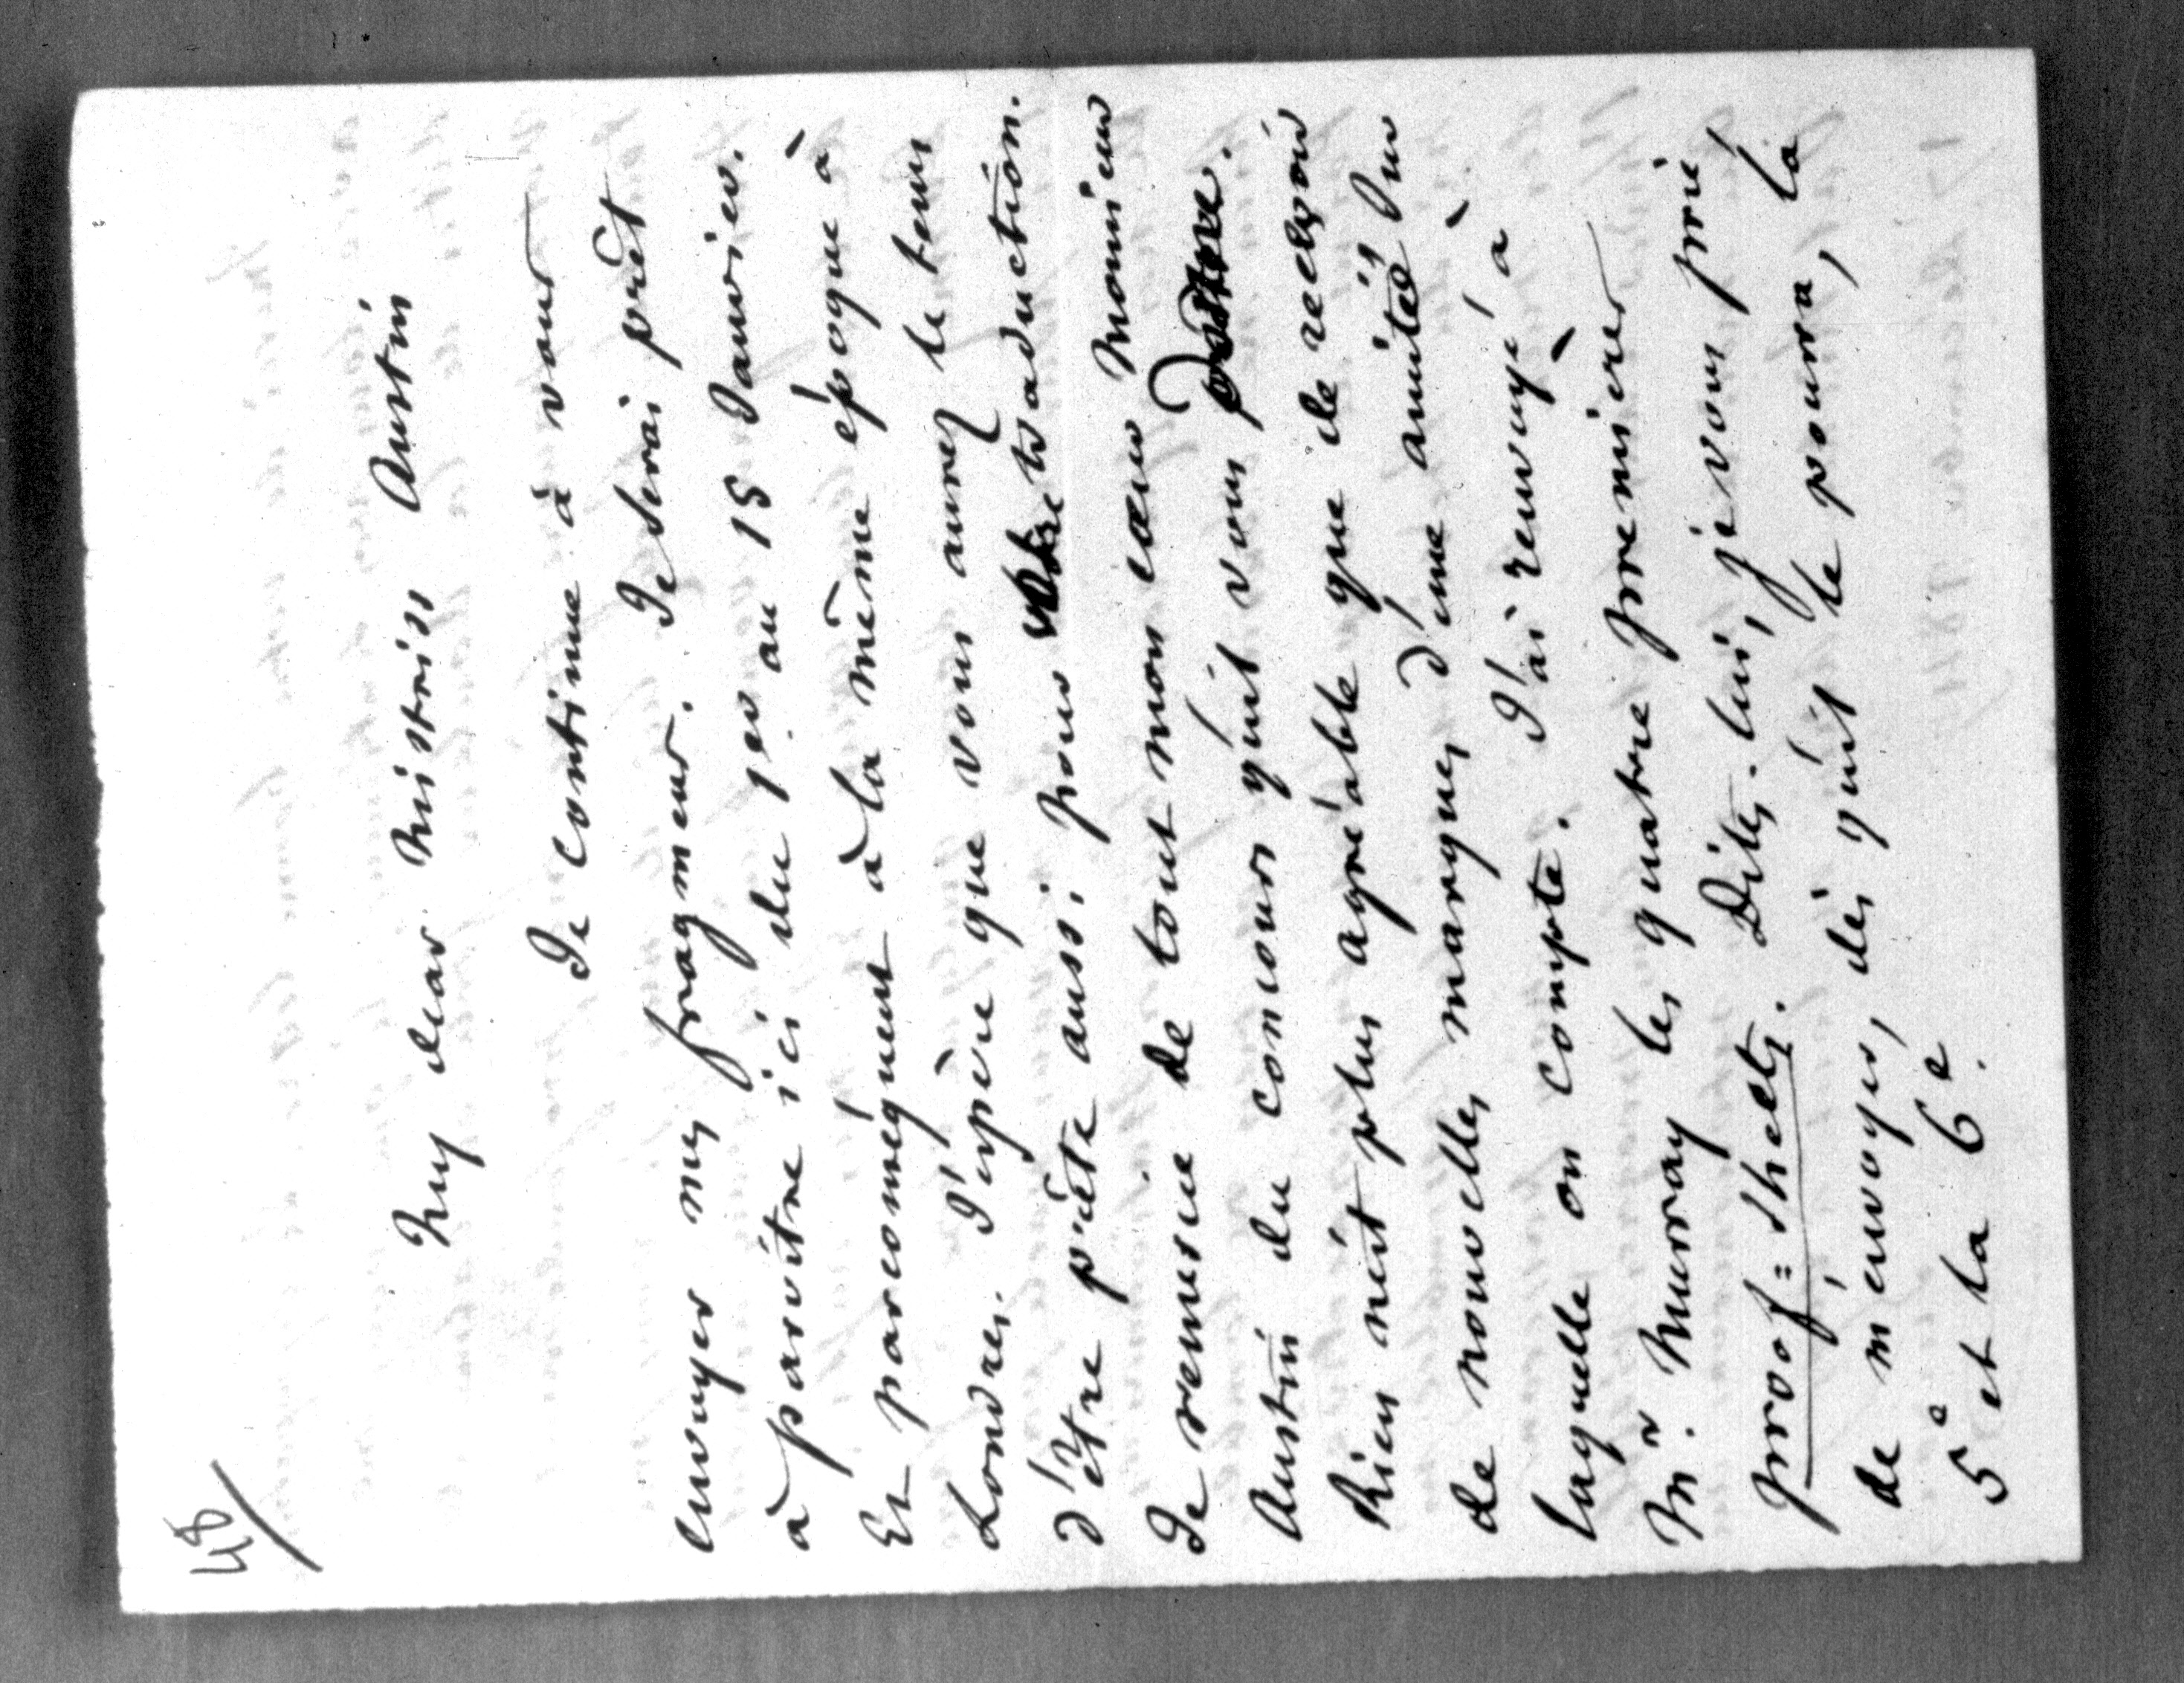 48
My dear Mistriss Austin
Je continue à vous
envoyer mes fragmens. Je serai prêt
à paroitre ici du 1er au 15 Janvier.
Et parconséquent à la même époque à
Londres. J'espère que vous aurez le tems
d'être prête aussi pour votre traduction.
Je remercie de tout mon cœur Monsieur
Austin du concours qu'il vous prête.
Rien n'est plus agréable que de recevoir
de nouvelles marques d'une amitié sur
laquelle on compte. J'ai renvoyé à
Mr. Murray les quatre premieres
proof=sheets. Dites-lui, je vous prie,
de m'envoyer, dès qu'il le pourra, la
5e et la 6e.